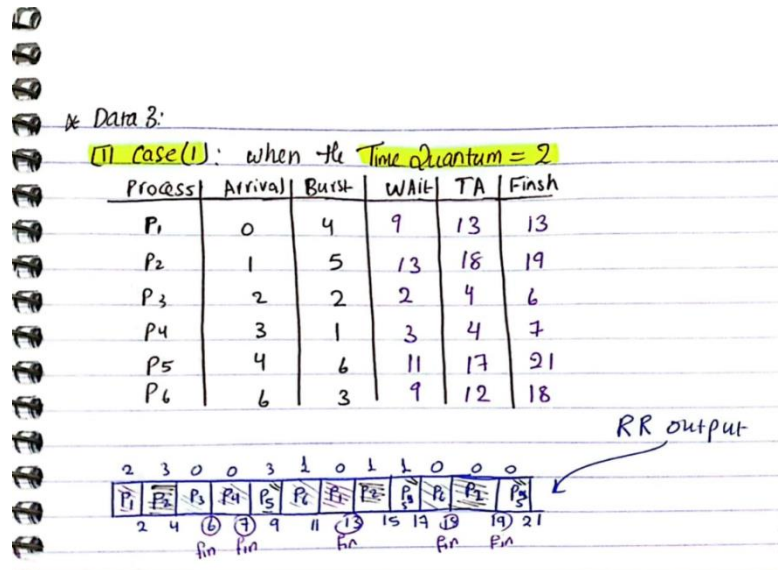 * Data 3:
[1] Case(1): when the Time Quantum = 2
Process Arrival Burst WAit TA Finsh
P1 0 4 9 13 13
P2 1 5 13 18 19
P3 2 2 2 4 6
P4 3 1 3 4 7
P5 4 6 11 17 21
P6 6 3 9 12 18
RR output
2 3 0 0 3 1 0 1 1 0 0 0
P1 P2 P3 P4 P5 P6 P1 P2 P5 P6 P2 P5
2 4 6 7 9 11 13 15 17 18 19 21
fin fin fin fin Fin